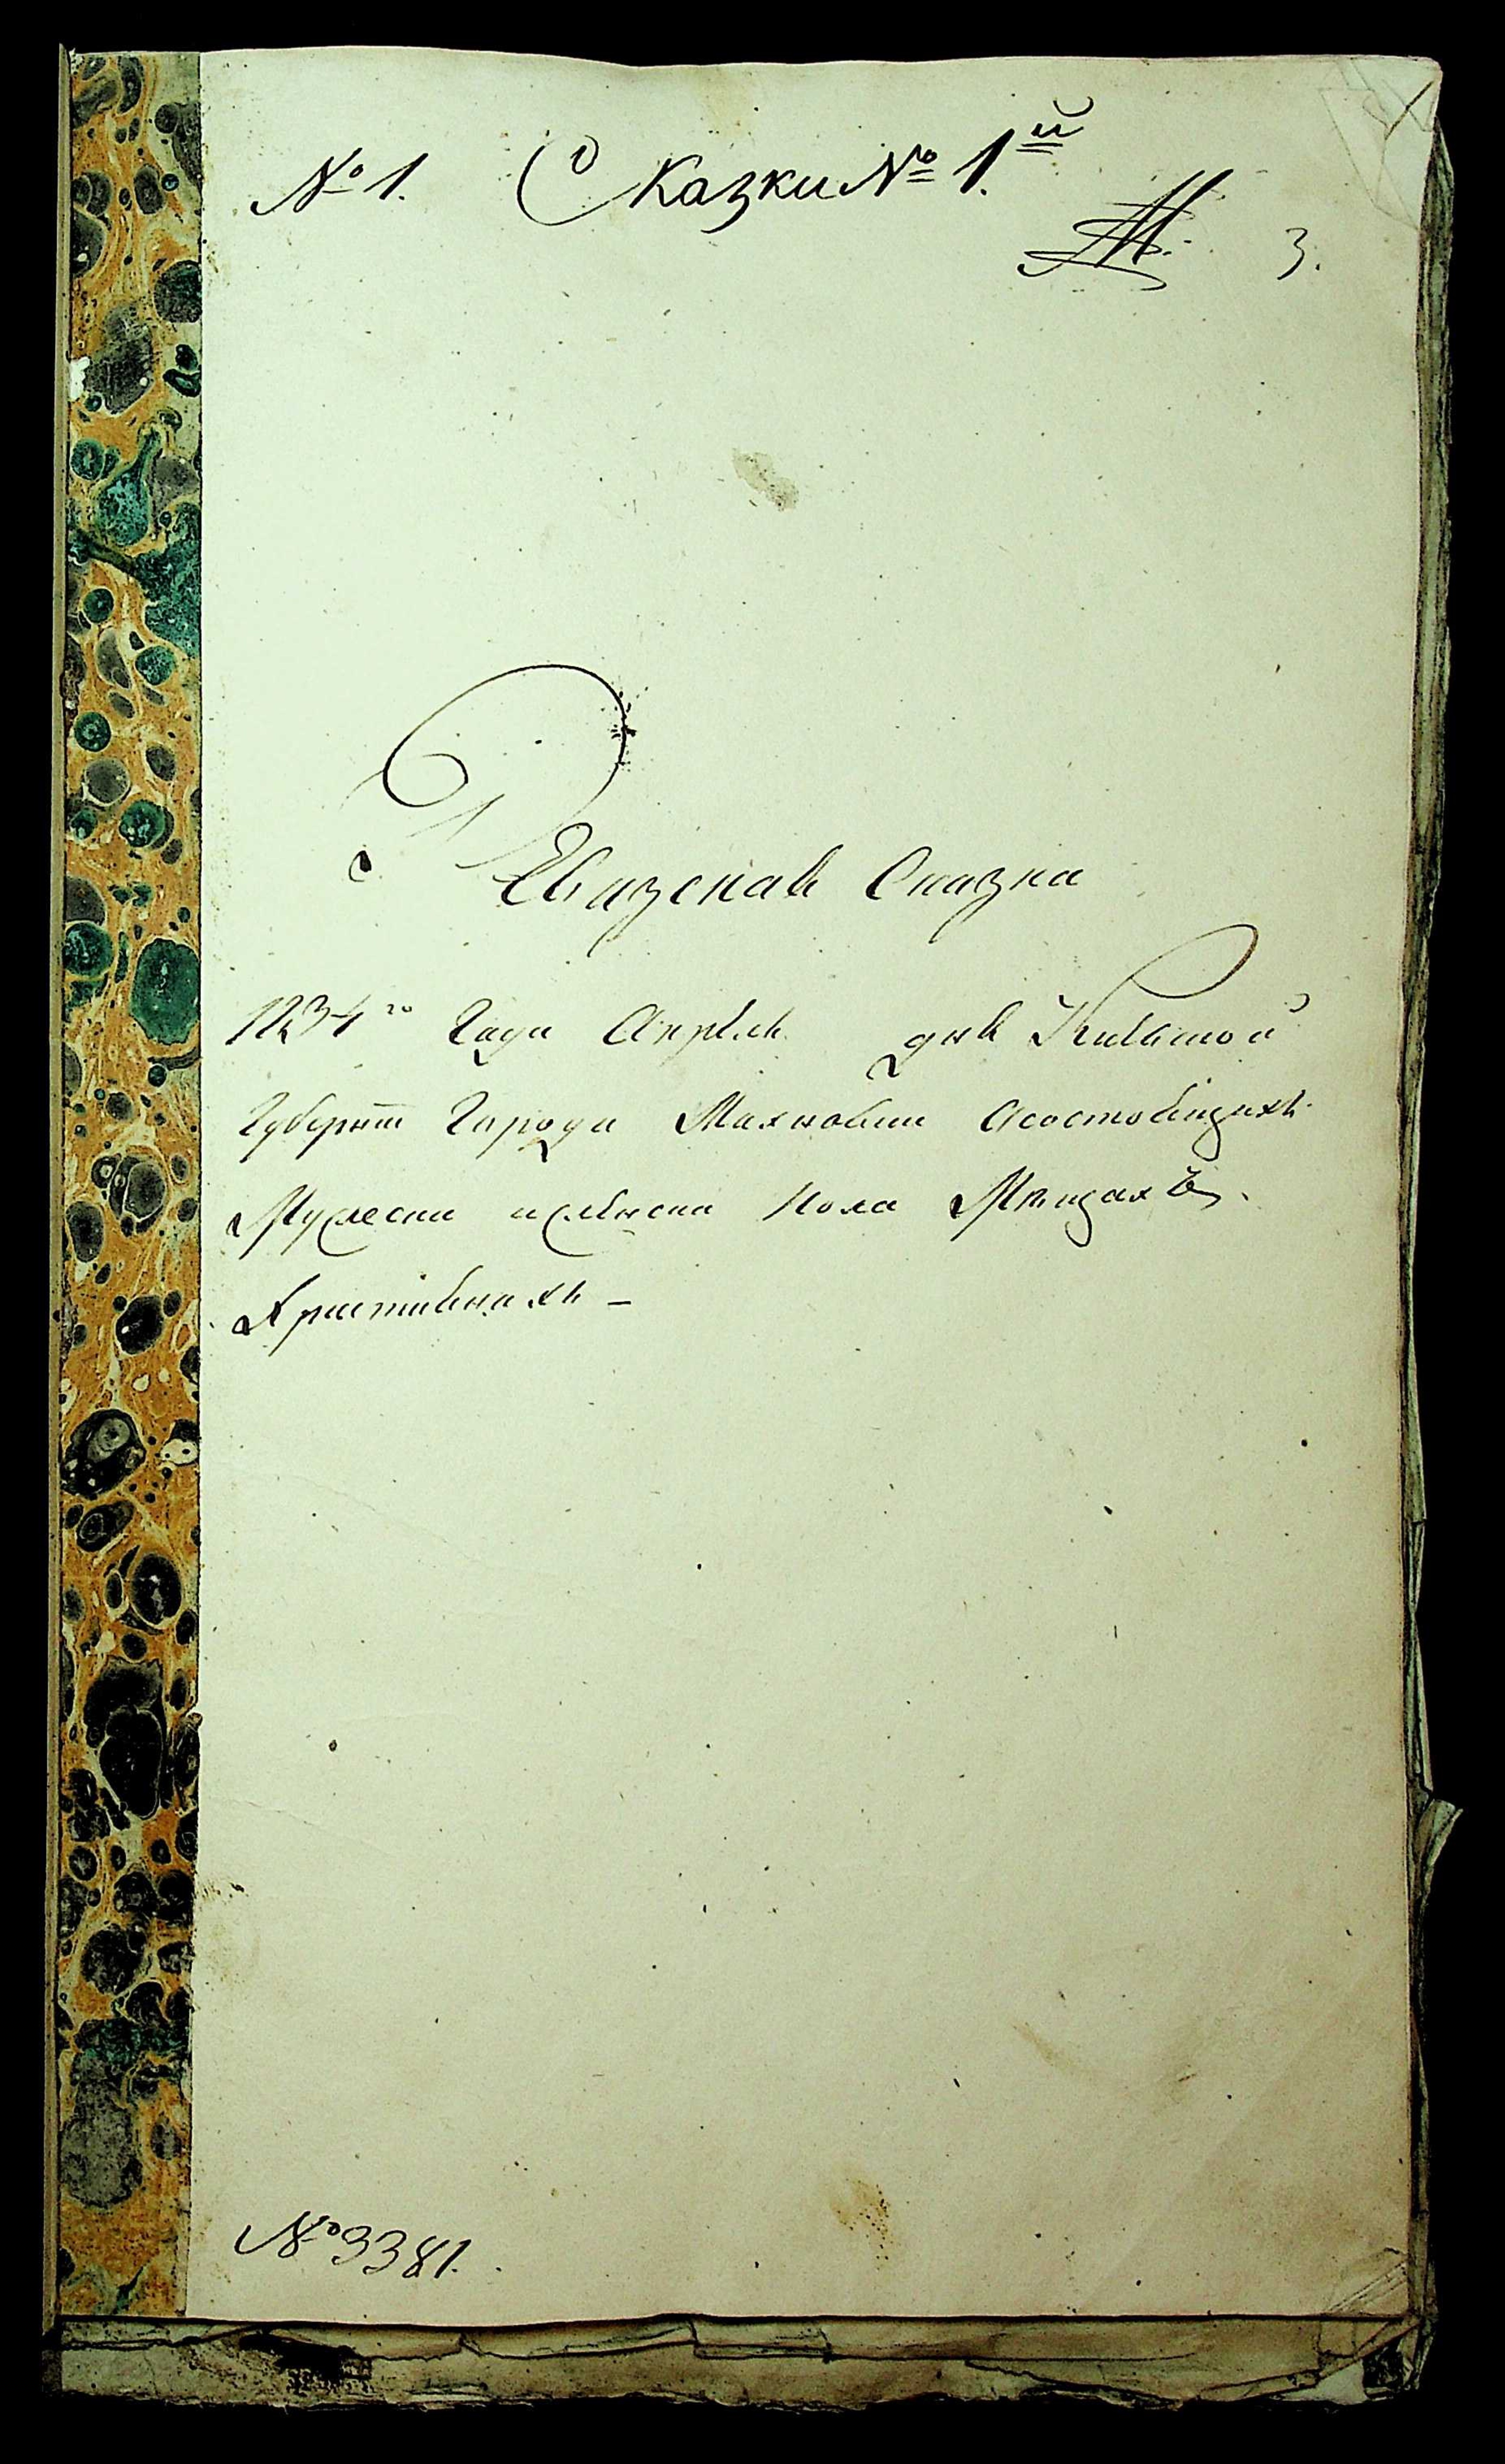 № 1. Сказки № 1.й
3.
Ревизская Сказка
1834го Года Апреля дня Киевской
Губернии Города Махновки Осостоящихъ
Мужеска и женска пола Мещанъ
Християнахъ –
№ 3381.